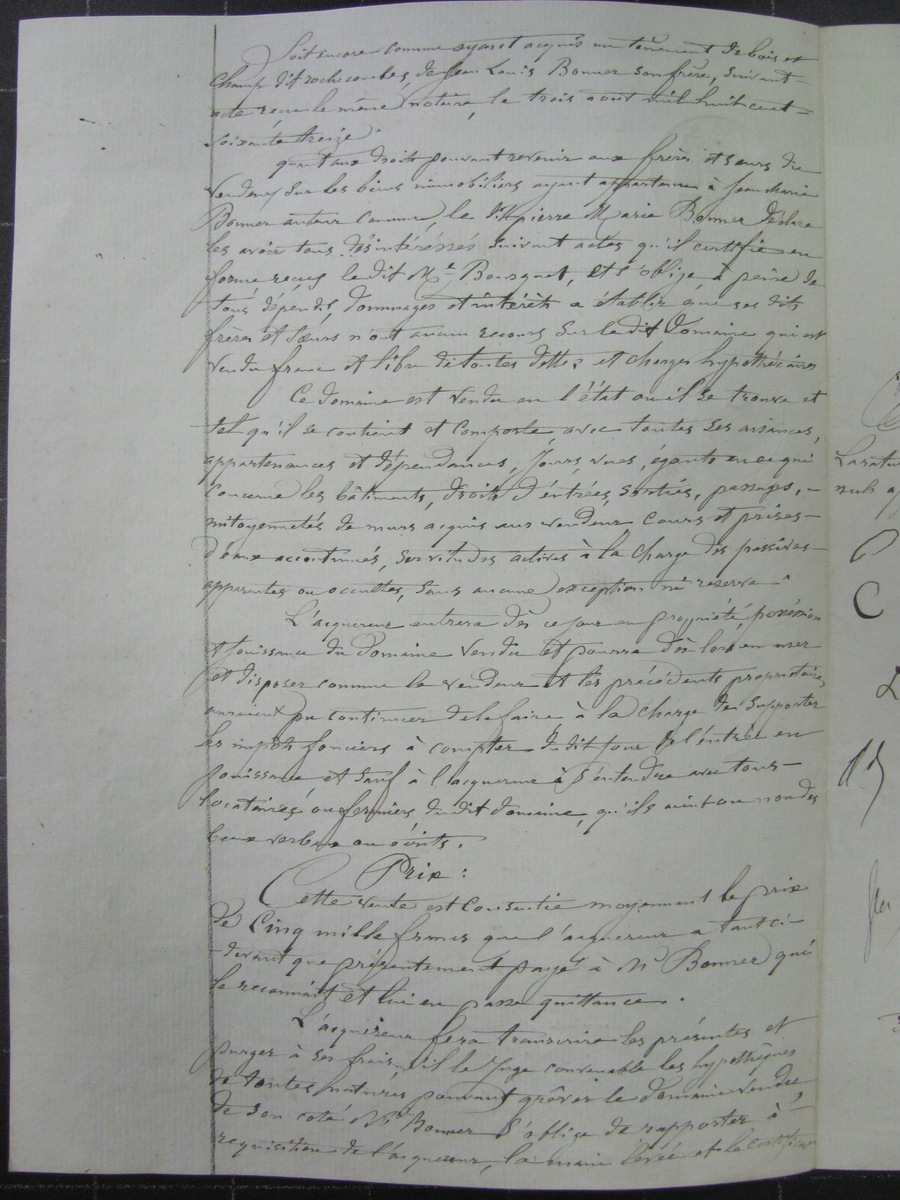 Soit encore comme ayant acquis un tènement de bois et
champ dit rochecombes, de Jean Louis Bonner son frère, suivant
acte reçu le même notaire, le trois aout mil huit cent
soixante treize.
quant aux droits pouvant revenir aux frères et sœurs du
vendeur sur les biens immobiliers ayant appartenu à Jean Marie
Bonner auteur commun, le dit pierre Marie Bonner déclare
les avoir tous désintéressés suivant actes qu'il certifie en
forme reçus le dit Me Bousquet, et s'oblige, à peine de
tous dépends, dommages et intérêts a établir que ses dits
frères et sœurs n'ont aucun recours sur le dit Domaine qui est
vendu franc et libre de toutes dettes et charges hypothécaires
Ce domaine est vendu en l'état ou il se trouve et
tel qu'il se contient et comporte avec toutes ses aisances,
appartenances et dépendances, Jours, vues, égouts en ce qui
concerne les bâtiments, droits d'entrées, sorties, passages,
mitoyennetés de murs acquis aux vendeur, cours et prises
d'eaux accoutumés, servitudes actives à la charge des passives
apparentes ou occultes, sans aucune exception ni réserve
L'acquereur entrera dès ce jour en propriété, possession
et jouissance du domaine vendu et pourra dès lors en user
et disposer comme le vendeur et les précédents propriétaires
auraient pu continuer de le faire à la charge de supporter
les impôts fonciers à compter du dit jour de l'entrée en
jouissance et sauf à l'acquereur à s'entendre avec tous
locataires ou fermiers du dit domaine, qu'ils aient ou non des
beaux verbaux ou écrits.
Prix :
Cette vente est consentie moyennant le prix
de cinq mille francs que l'acquereur a tant ci-
devant que présentement payé à Mr Bonner qui
le reconnait et lui en passe quittance.
L'acquéreur fera transcrire les présentes et
purger à ses frais, s'il le Juge convenable les hypothèques
de toutes natures pouvant grêver le domaine vendu
de son coté Mr Bonner s'oblige de rapporter à
requisition de l'acquereur, la main levée et le certificat